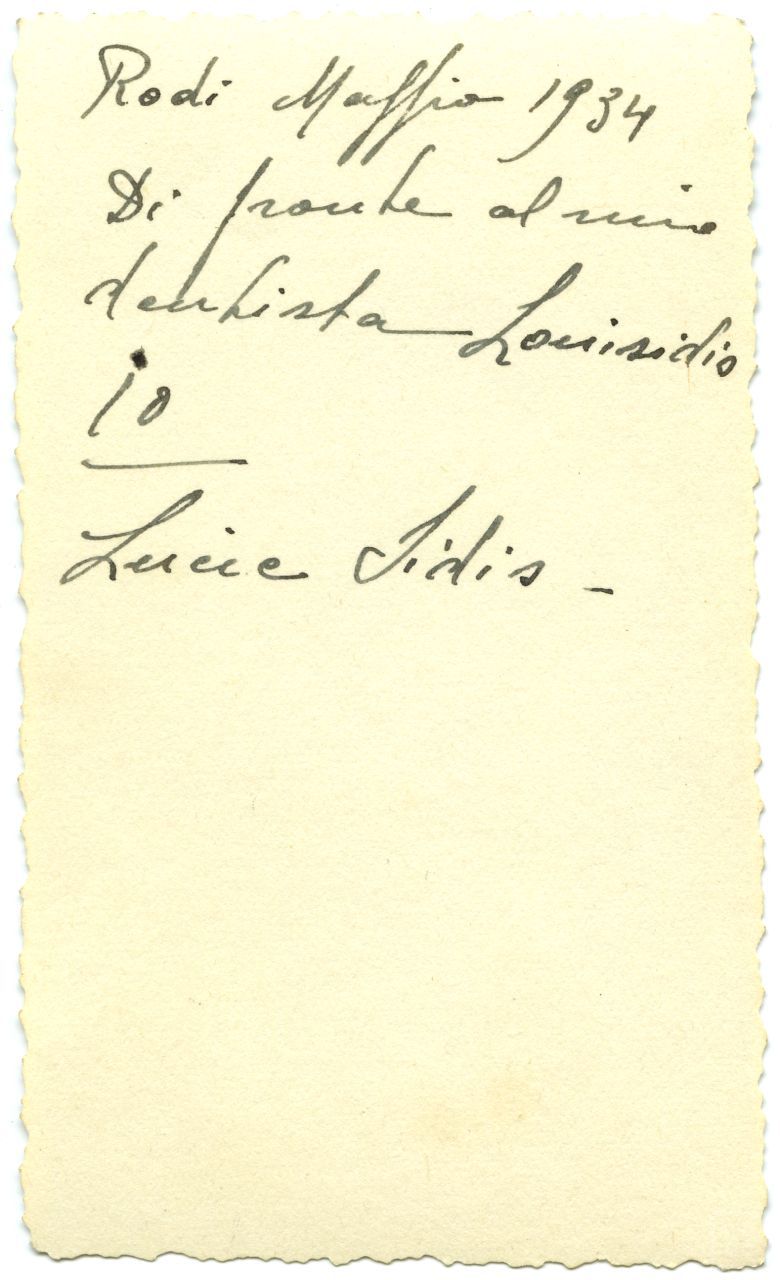 Rodi Maggio 1934
Di fronte al mio
dentista Louisidis
io
Lucie Sidis -